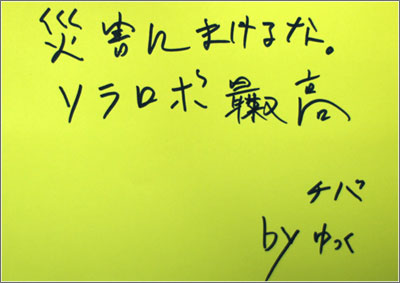 災害にまけるな。
ソラロボ最高
チバ
by ゆっく